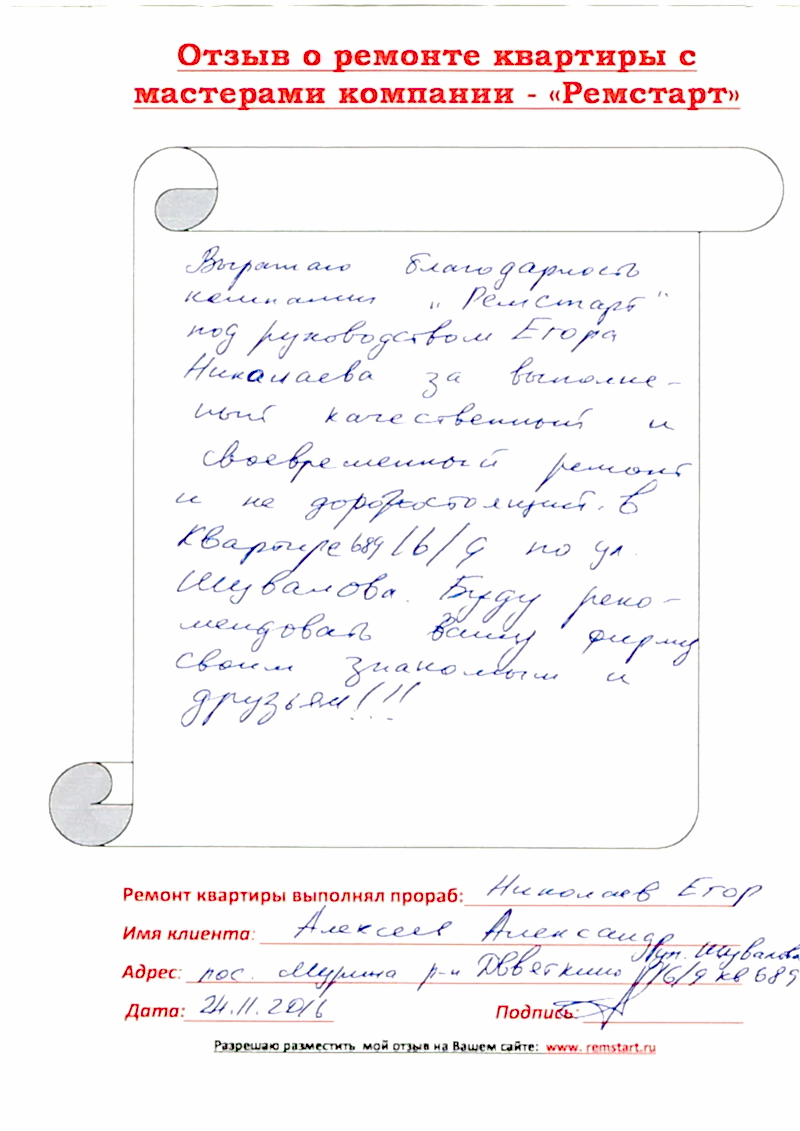 Отзыв о ремонте квартиры с
мастерами компании - «Ремстарт»
Выражаю благодарность
компании "Ремстарт"
под руководством Егора
Николаева за выполне-
ный качественный и
своевременный ремонт
и не дорогостоящий. в
квартире 689 16/9 по ул.
Шувалова. Буду реко-
мендовать Вашу фирму
своим знакомым и
друзьям!!!
Ремонт квартиры выполнял прораб: Николаев Егор
Имя клиента: Алексеев Александр
Адрес: пос. Мурина р-н Девяткино ул. Шувалова 16/9 кв 689
Дата: 24.11.2016 Подпись:
Разрешаю разместить мой отзыв на Вашем сайте: www. remstart.ru